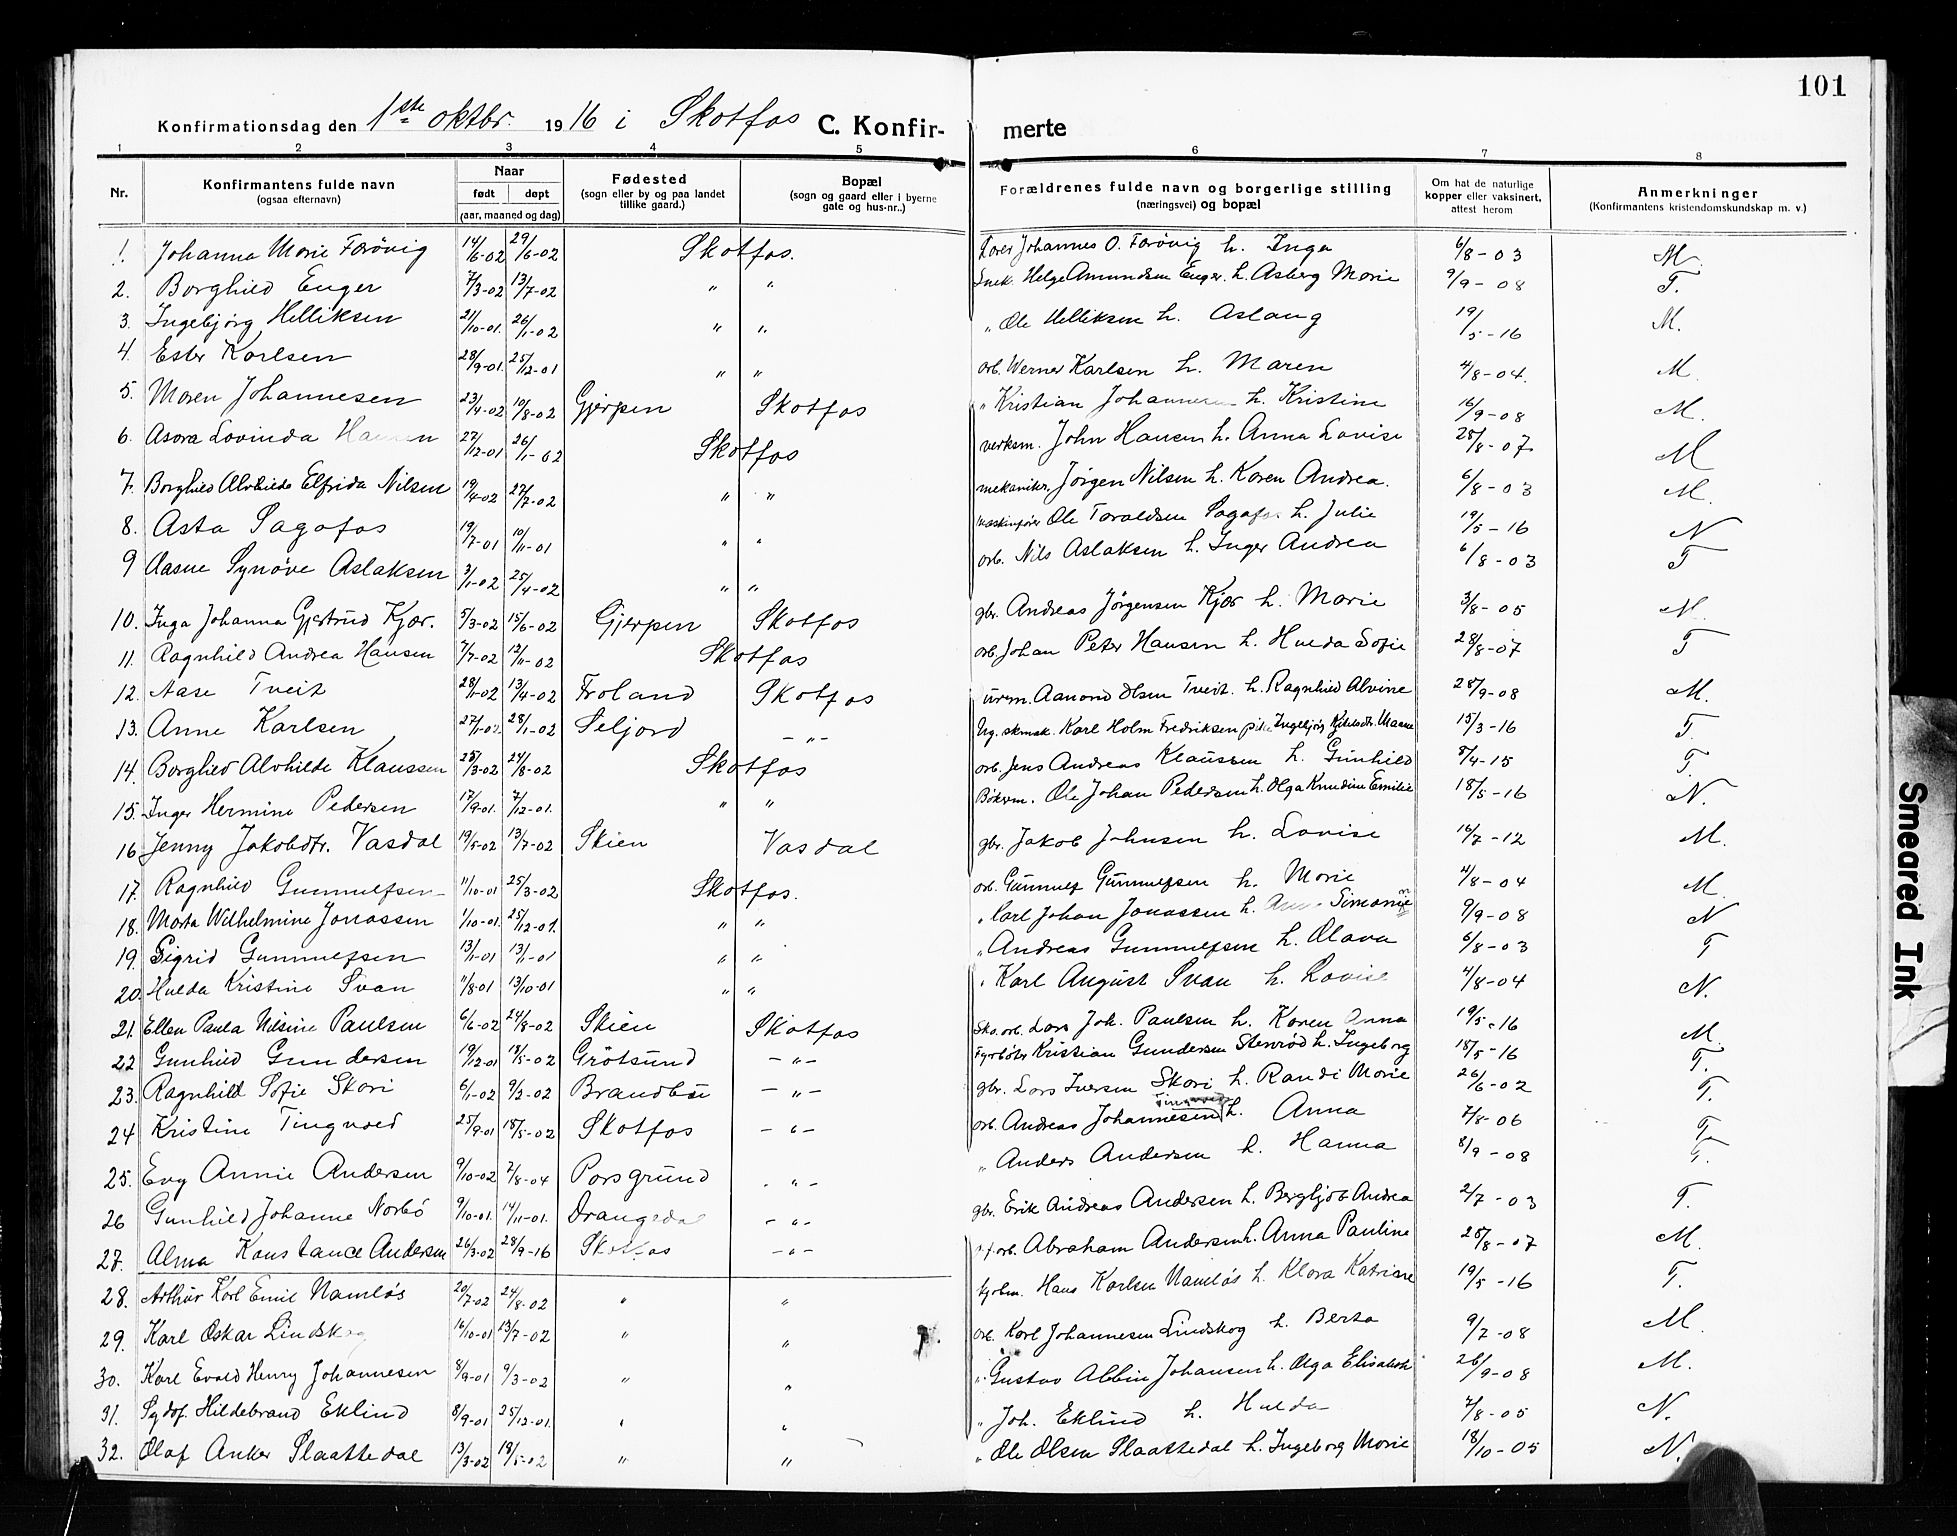 101
Konfirmationsdag den 1ste oktbr. 1916 i Skotfos C. Konfir- merte
1 2 3 4 5 6 7 8
Nr. Konfirmantens fulde navn (ogsaa efternavn) Naar født døpt (aar, maaned og dag) Fødested (sogn eller by og paa landet tillike gaard.) Bopæl (sogn og gaard eller i byerne gate og hus-nr..) Forældrenes fulde navn og borgerlige stilling (næringsvei) og bopæl Om hat de naturlige kopper eller vaksinert, attest herom Anmerkninger (Konfirmantens kristendomskundskap m. v.)
1. Johanna Marie Farövig 14/6-02 29/6-02 Skotfos. Lærer Johannes O. Farövig h. Inga 6/8-03 M.
2. Borghild Enger 7/3-02 13/7-02 " " Snek. Helge Amundsen Enger. h. Asberg Marie 9/9-08 T.
3. Ingebjørg Helliksen 21/10-01. 26/1-02 " " " Ole Helliksen h. Aslaug 19/5-16 M.
4. Ester Karlsen 28/9-01. 25/12-01 " " arb. Werner Karlsen h. Maren 4/8-04. M
5. Maren Johannesen 23/4-02 10/8-02 Gjerpen Skotfos " Kristian Johannesen h. Kristine 16/9-08 M.
6. Asora Lovinda Hansen 27/12-01 26/1-02 Skotfos verksm. John Hansen h. Anna Lovise 28/8-07 M
7. Borghild Alvhilde Elfrida Nilsen 19/4-02 27/7-02 " " mekanikr. Jørgen Nilsen h. Karen Andrea. 6/8-03 M.
8. Asta Sagafos 19/7-01 10/11-01 " " Maskinfører Ole Taraldsen Sagafos h. Julie 19/5-16 N
9 Aasne Synøve Aslaksen 3/1-02 25/4-02 " " arb. Nils Aslaksen h. Inger Andrea 6/8-03 T
10. Inga Johanna Gjertrud Kjær. 5/3-02 15/6-02 Gjerpen Skotfos gbr. Andreas Jørgensen Kjær h. Marie 3/8-05 M.
11. Ragnhild Andrea Hansen 7/7-02 12/11-02 Skotfos arb. Johan Peter Hansen h. Hulda Sofie 28/8-07 T
12. Aase Tveit 28/1-02 13/4-02 Froland Skotfos urm. Aanond Olsen Tveit. h. Ragnhild Alvine 28/9-08 M.
13. Anne Karlsen 27/1-02. 28/1-02 Seljord - " - Ug. skmsk. Karl Holm Fredriksen pike Ingebjørg Maane 15/3-16 T.
14. Borghild Alvhilde Klaussen 25/3-02 24/8-02 Skotfos arb. Jens Andreas Klaussen h. Gunhild 8/4-15 T.
15. Inger Hermine Pedersen 17/9-01. 7/12-01. " " Bökerm. Ole Johan Pedersen h. Olga Knudine Emilie 18/5-16 N.
16 Jenny Jakobdtr. Vasdal 19/5-02 13/7-02 Skien Vasdal gbr. Jakob Johnsen h. Lovise 16/7-12 M.
17. Ragnhild Gunnulfsen 11/10-01 25/3-02 Skotfos. arb. Gunnulf Gunnulfsen h. Marie 4/8-04 M.
18. Marta Wilhelmine Jonassen 1/10-01. 25/12-01. " " " Carl Johan Jonassen h. Simonine 9/9-08 N
19. Sigrid Gunnulfsen 13/1-01 13/1-01 " " " Andreas Gunnulfsen h. Olava 6/8-03 T
20. Hulda Kristine Svan 11/8-01 13/10-01 " " " Karl August Svan h. Lovise 4/8-04 N.
21. Ellen Paula Nilsine Paulsen 6/6-02 24/8-02 Skien Skotfos Sko. arb. Lars Joh. Paulsen h. Karen Anna 19/5-16 M.
22 Gunhild Gundersen 19/12-01 18/5-02 Grötsund - " - Fyrböter Kristian Gundersen Stenrød h. Ingeborg 18/5-16 T.
23. Ragnhild Sofie Skari 6/1-02 9/3-02 Brandbu - " - gbr. Lars Iversen Skari h. Randi Marie 26/6-02 T.
24 Kristine Tingvold 25/9-01 18/5-02 Skotfos - " - arb. Andreas Johannesen Tingvold h. Anna 7/8-06 T
25. Evy Annie Andersen 9/10-02 7/8-04 Porsgrund - " - " Anders Andersen h. Hanna 8/9-08 T.
26 Gunhild Johanne Norbö 9/10-01. 14/11-01. Drangedal - " - gbr. Erik Andreas Andersen h. Bergljot Andrea 2/7-03 T.
27. Alma Konstance Andersen 26/3-02 28/9-16 Skotfos - " - arb. Abraham Andersen h. Anna Pauline 28/8-07 M.
28. Arthur Karl Emil Namløs 20/7-02 24/8-02 " " Hans Karlsen Namløs h. Klara Katrine 19/5-16 T.
29. Karl Oskar Lindskog 16/10-01 13/7-02 " " arb. Karl Johannesen Lindskog h. Berta 9/7-08 M.
30. Karl Evald Henry Johannesen 8/9-01 9/3-02 " " " Gustav Albin Johansen h. Olga Elisabeth 26/9-08 M.
31. Sydof. Hildebrand Eklund 8/9-01 25/12-01. " " " Joh. Eklund h. Hulda 7/8-05 N.
32. Olaf Anker Slaattedal 13/3-02 18/5-02 " " " Ole Olsen Slaattedal h. Ingeborg Marie 18/10-05 N.
Smeared Ink